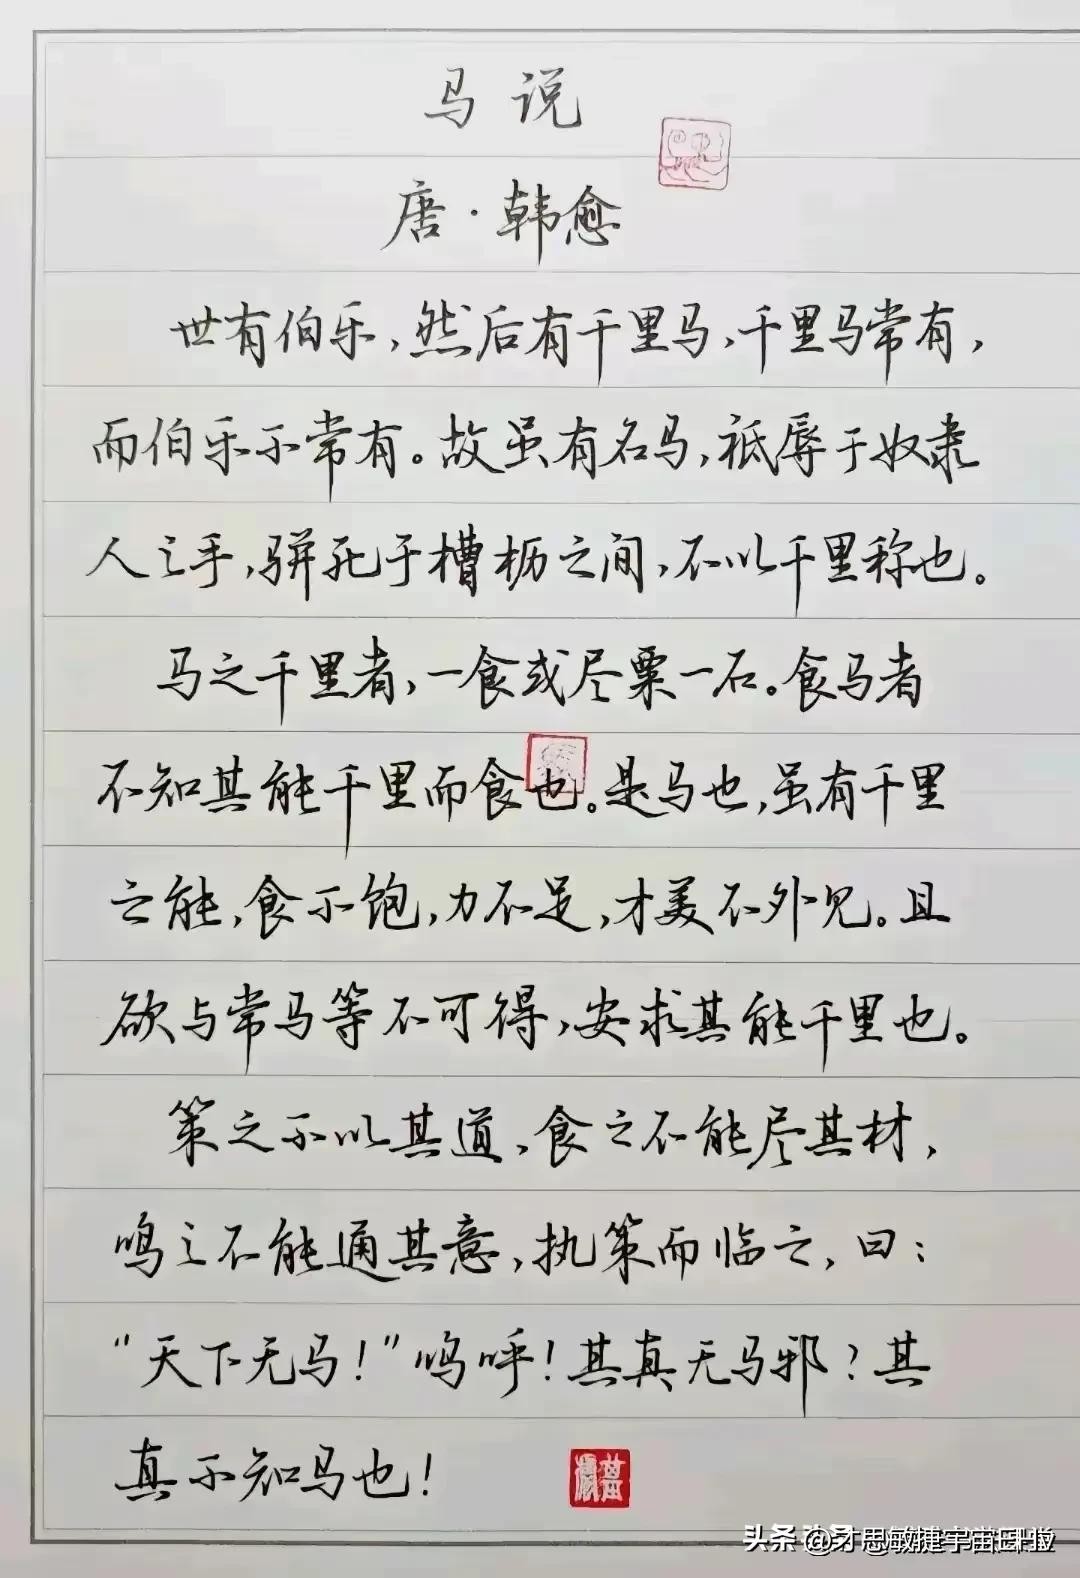 马说
唐·韩愈
世有伯乐,然后有千里马,千里马常有,
而伯乐不常有。故虽有名马,祗辱于奴隶
人之手,骈死于槽枥之间,不以千里称也。
马之千里者,一食或尽粟一石。食马者
不知其能千里而食也。是马也,虽有千里
之能,食不饱,力不足,才美不外见。且
欲与常马等不可得,安求其能千里也。
策之不以其道,食之不能尽其材,
鸣之不能通其意,执策而临之,曰:
“天下无马!”呜呼!其真无马邪?其
真不知马也!
头条 @才思敏捷宇宙